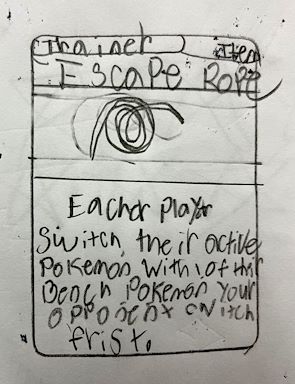 Trainer Item
Escape Rope
Eacher player
Switch their active
Pokemon with 1 of their
Bench Pokemon Your
opponent switch
frist.